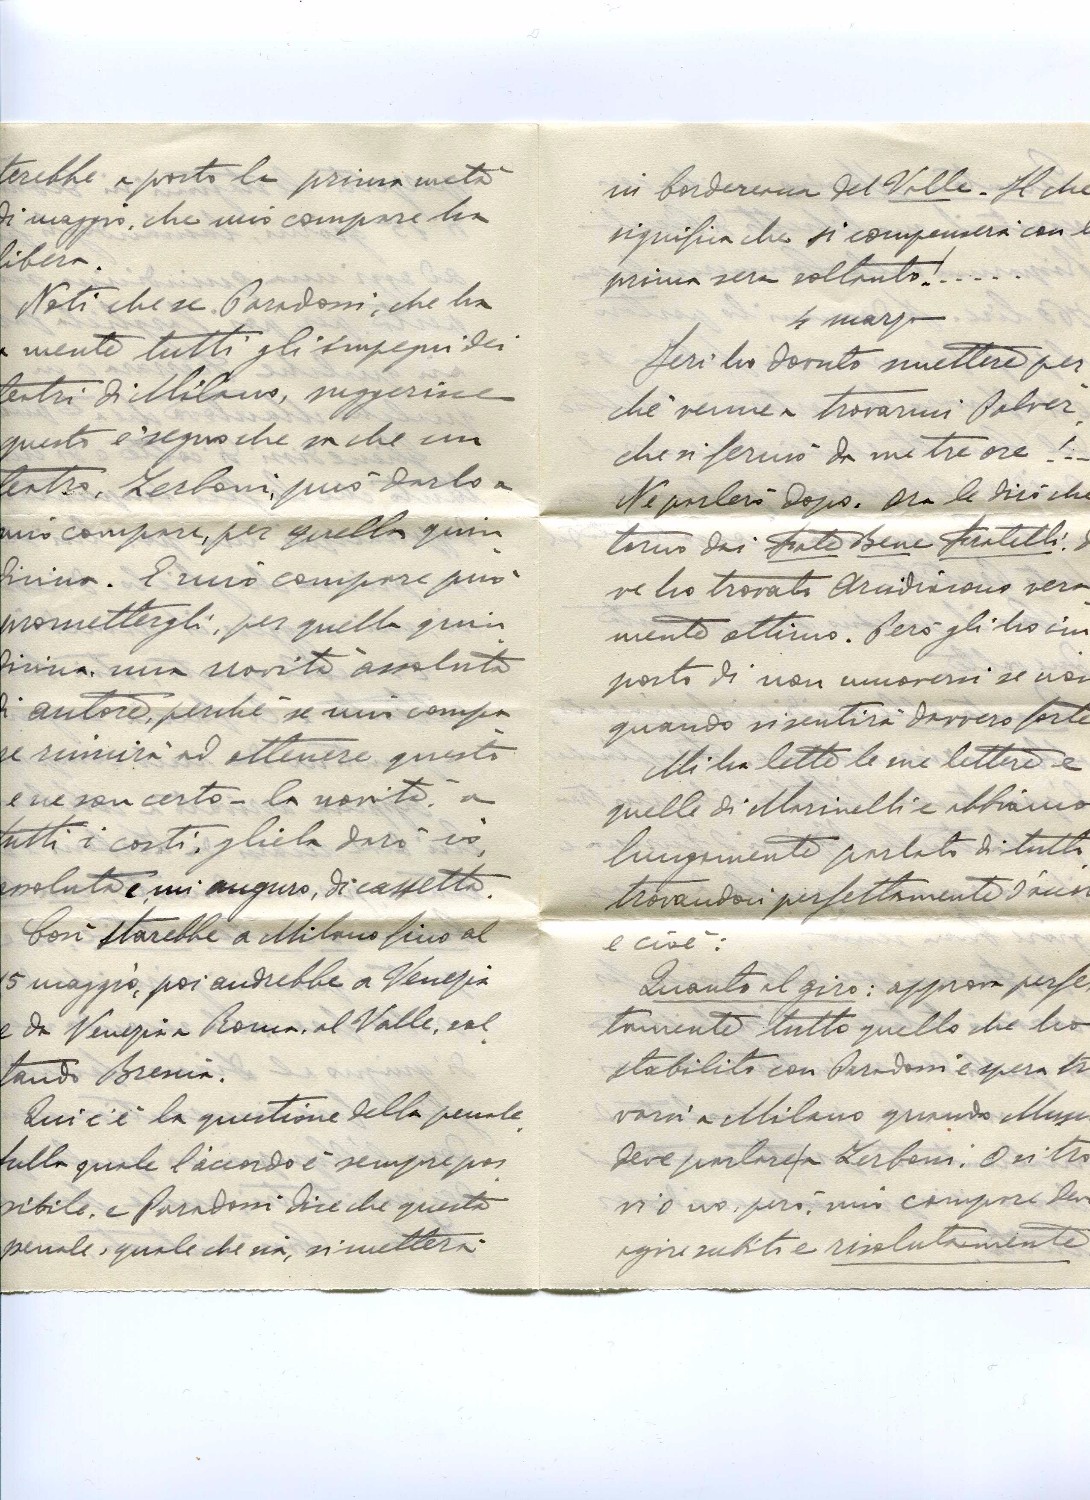 terebbe a posto la prima metà
di maggio, che mio compare ha
libera.
Noti che se Paradossi, che ha
a mente tutti gli impegni dei
teatri di Milano, suggerisce
questo è segno che sa che un
teatro, Zerboni, può darlo a
mio compare, per quella quin
dicina. E mio compare può
promettergli, per quella quin
dicina, una novità assoluta
di autore, perché se mio compa
re riuscirà ad ottenere questo
e ne son certo - la novità, a
tutti i costi, gliela darò io,
assoluta e, mi auguro, di cassetta.
Così starebbe a Milano fino al
15 maggio, poi andrebbe a Venezia
e da Venezia a Roma, al Valle, sal
tando Brescia.
Qui c'è la questione della penale,
sulla quale l'accordo è sempre pos
sibile, e Paradossi dice che questa
penale, quale che sia, si metterà
in bordereaux del Valle. Il che
significa che si compenserà con la
prima sera soltanto!.....
4 marzo
Ieri ho dovuto smettere per
ché venne a trovarmi Polver,
che si fermò da me tre ore!...
Ne parlerò dopo. Ora le dirò che
torno dai Fate Bene Fratelli, do
ve ho trovato Arcidiacono vera
mente ottimo. Però gli ho im
posto di non muoversi se non
quando si sentirà davvero forte
Mi ha letto le sue lettere e
quelle di Marinelli e abbiamo
lungamente parlato di tutto
trovandoci perfettamente d'accor
e cioè:
Quanto al giro: approva perfet
tamente tutto quello che ho
stabilito con Paradossi e spera tro
varsi a Milano quando Mus
deve parlare a Zerboni. O si tro
vi o no, però, mio compare deve
agire subito e risolutamente